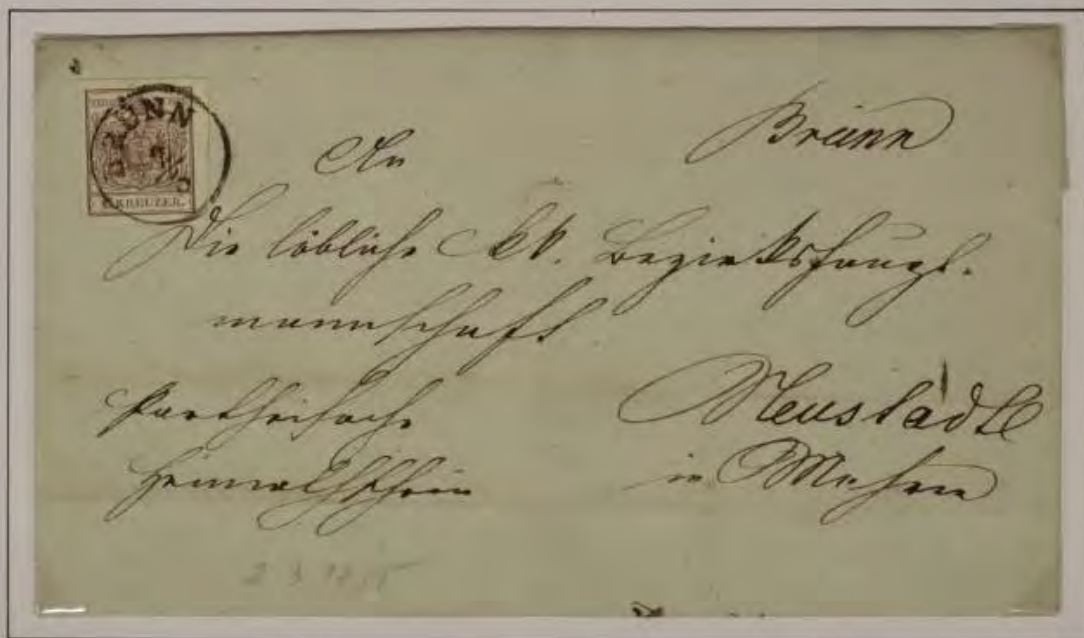 BRÜNN
6 KREUZER.
Brünn
An
Die löbliche kk. Bezirkshaupt-
mannschaft
Partheisache
Heimathschein
Neustadtl
in Mähren